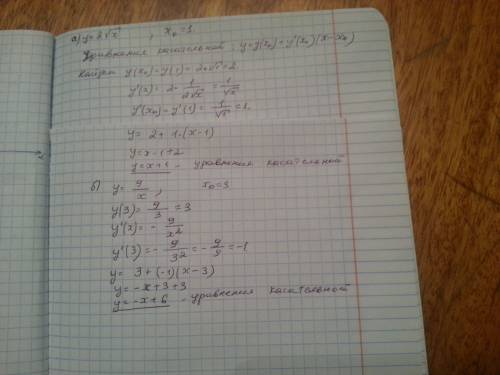 а) y = 2√x , x₀ = 1
Уравнения касательной : y = y(x₀) + y'(x₀)(x - x₀)
Найдем y(x₀) = y(1) = 2·√1 = 2
y'(x) = 2 · 1/(2√x) = 1/√x
y'(x₀) = y'(1) = 1/√1 = 1.
y = 2 + 1·(x - 1)
y = x - 1 + 2
y = x + 1 - уравнения касательной
б) y = 9/x , x₀ = 3
y(3) = 9/3 = 3
y'(x) = - 9/x²
y'(3) = - 9/3² = - 9/9 = -1
y = 3 + (-1)(x - 3)
y = -x + 3 + 3
y = -x + 6 - уравнения касательной